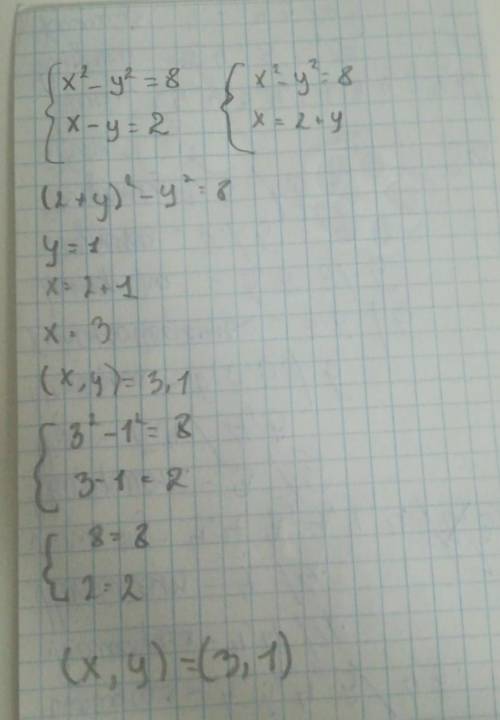 {x² - y² = 8 {x² - y² = 8
x - y = 2 x = 2 + y
(2 + y)² - y² = 8
y = 1
x = 2 + 1
x = 3
(x, y) = 3, 1
{3² - 1² = 8
3 - 1 = 2
{8 = 8
2 = 2
(x, y) = (3, 1)